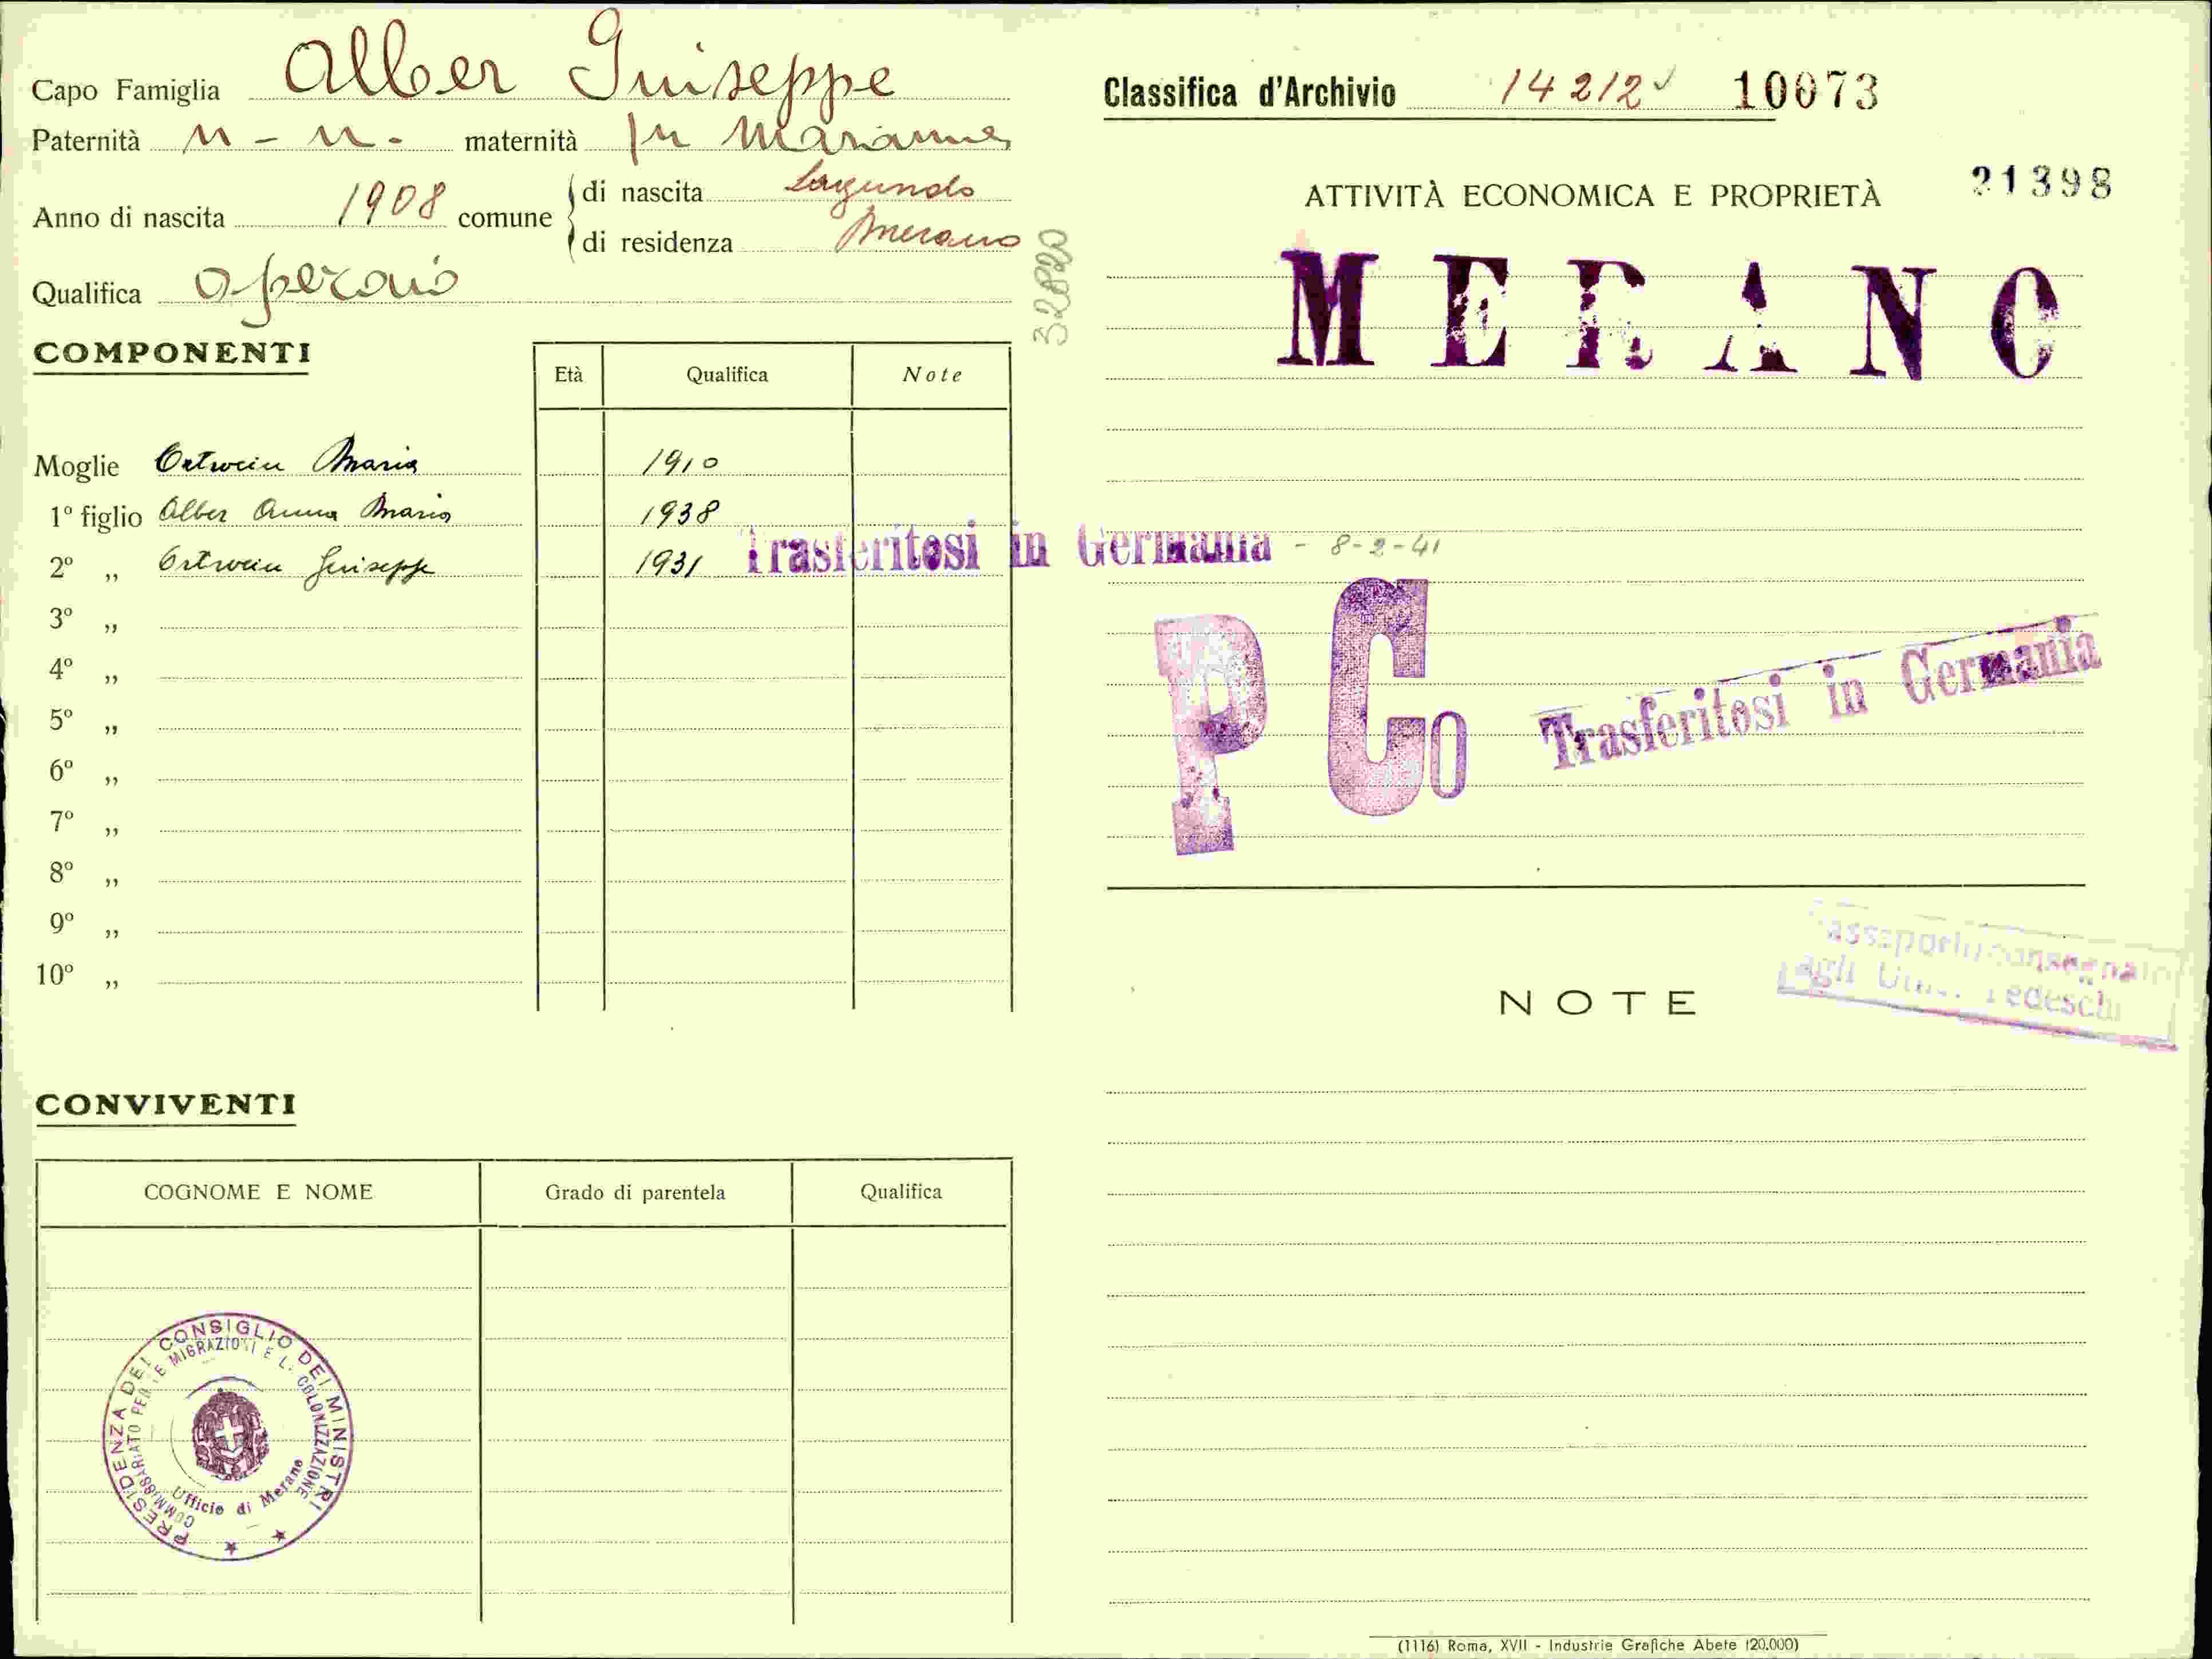 Capo Famiglia Alber Giuseppe
Paternità n - n. maternità fu Marianna
Anno di nascita 1908 comune di nascita Lagundo
di residenza Merano
Qualifica operaio
328820
COMPONENTI
Età Qualifica Note
Moglie Ortwein Maria 1910
1º figlio Alber Anna Maria 1938
2º „ Ortwein Giuseppe 1931
Trasferitosi in Germania - 8-2-41
3º „
4º „
5º „
6º „
7º „
8º „
9º „
10º „
CONVIVENTI
COGNOME E NOME Grado di parentela Qualifica
PRESIDENZA DEL CONSIGLIO DEI MINISTRI
COMMISSARIATO PER LE MIGRAZIONI E L. COLONIZZAZIONE
Ufficio di Merano
Classifica d'Archivio 14212 10073
ATTIVITÀ ECONOMICA E PROPRIETÀ 21398
MERANO
P Co Trasferitosi in Germania
NOTE
agli Tedeschi
(1116) Roma, XVII - Industrie Grafiche Abete (20.000)